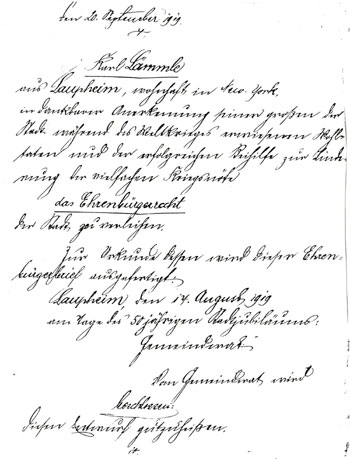 den 20. September 1919.
Karl Lämmle
aus Laupheim, wohnhaft in New-York,
in dankbarer Anerkennung seiner großen der
Stadt während des Weltkrieges erwiesenen Wohl-
taten und der erfolgreichen Beihilfe zur Linde-
rung der vielfachen Kriegsnöte
das Ehrenbürgerrecht
der Stadt zu verleihen.
Zur Urkunde dessen wird dieser Ehren-
bürgerbrief ausgefertigt.
Laupheim, den 14. August 1919
am Tage des 50jährigen Stadtjubiläums:
Gemeinderat
Vom Gemeinderat wird
beschlossen:
diesen Entwurf gutzuheißen.